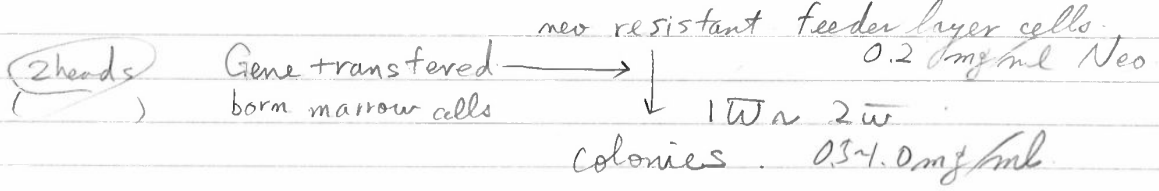 neo resistant feeder layer cells.
2heads Gene transfered → ↓ 0.2 mg/ml Neo
( ) born marrow cells 1w̅ ~ 2w̅
colonies. 0.5~1.0mg/ml